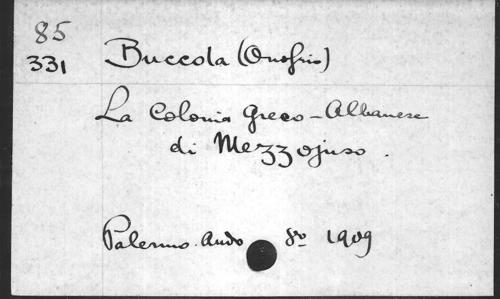 85
331
Buccola (Onofrio)
La Colonia Greco-Albanese
di Mezzojuso.
Palermo. Ando 8º 1909